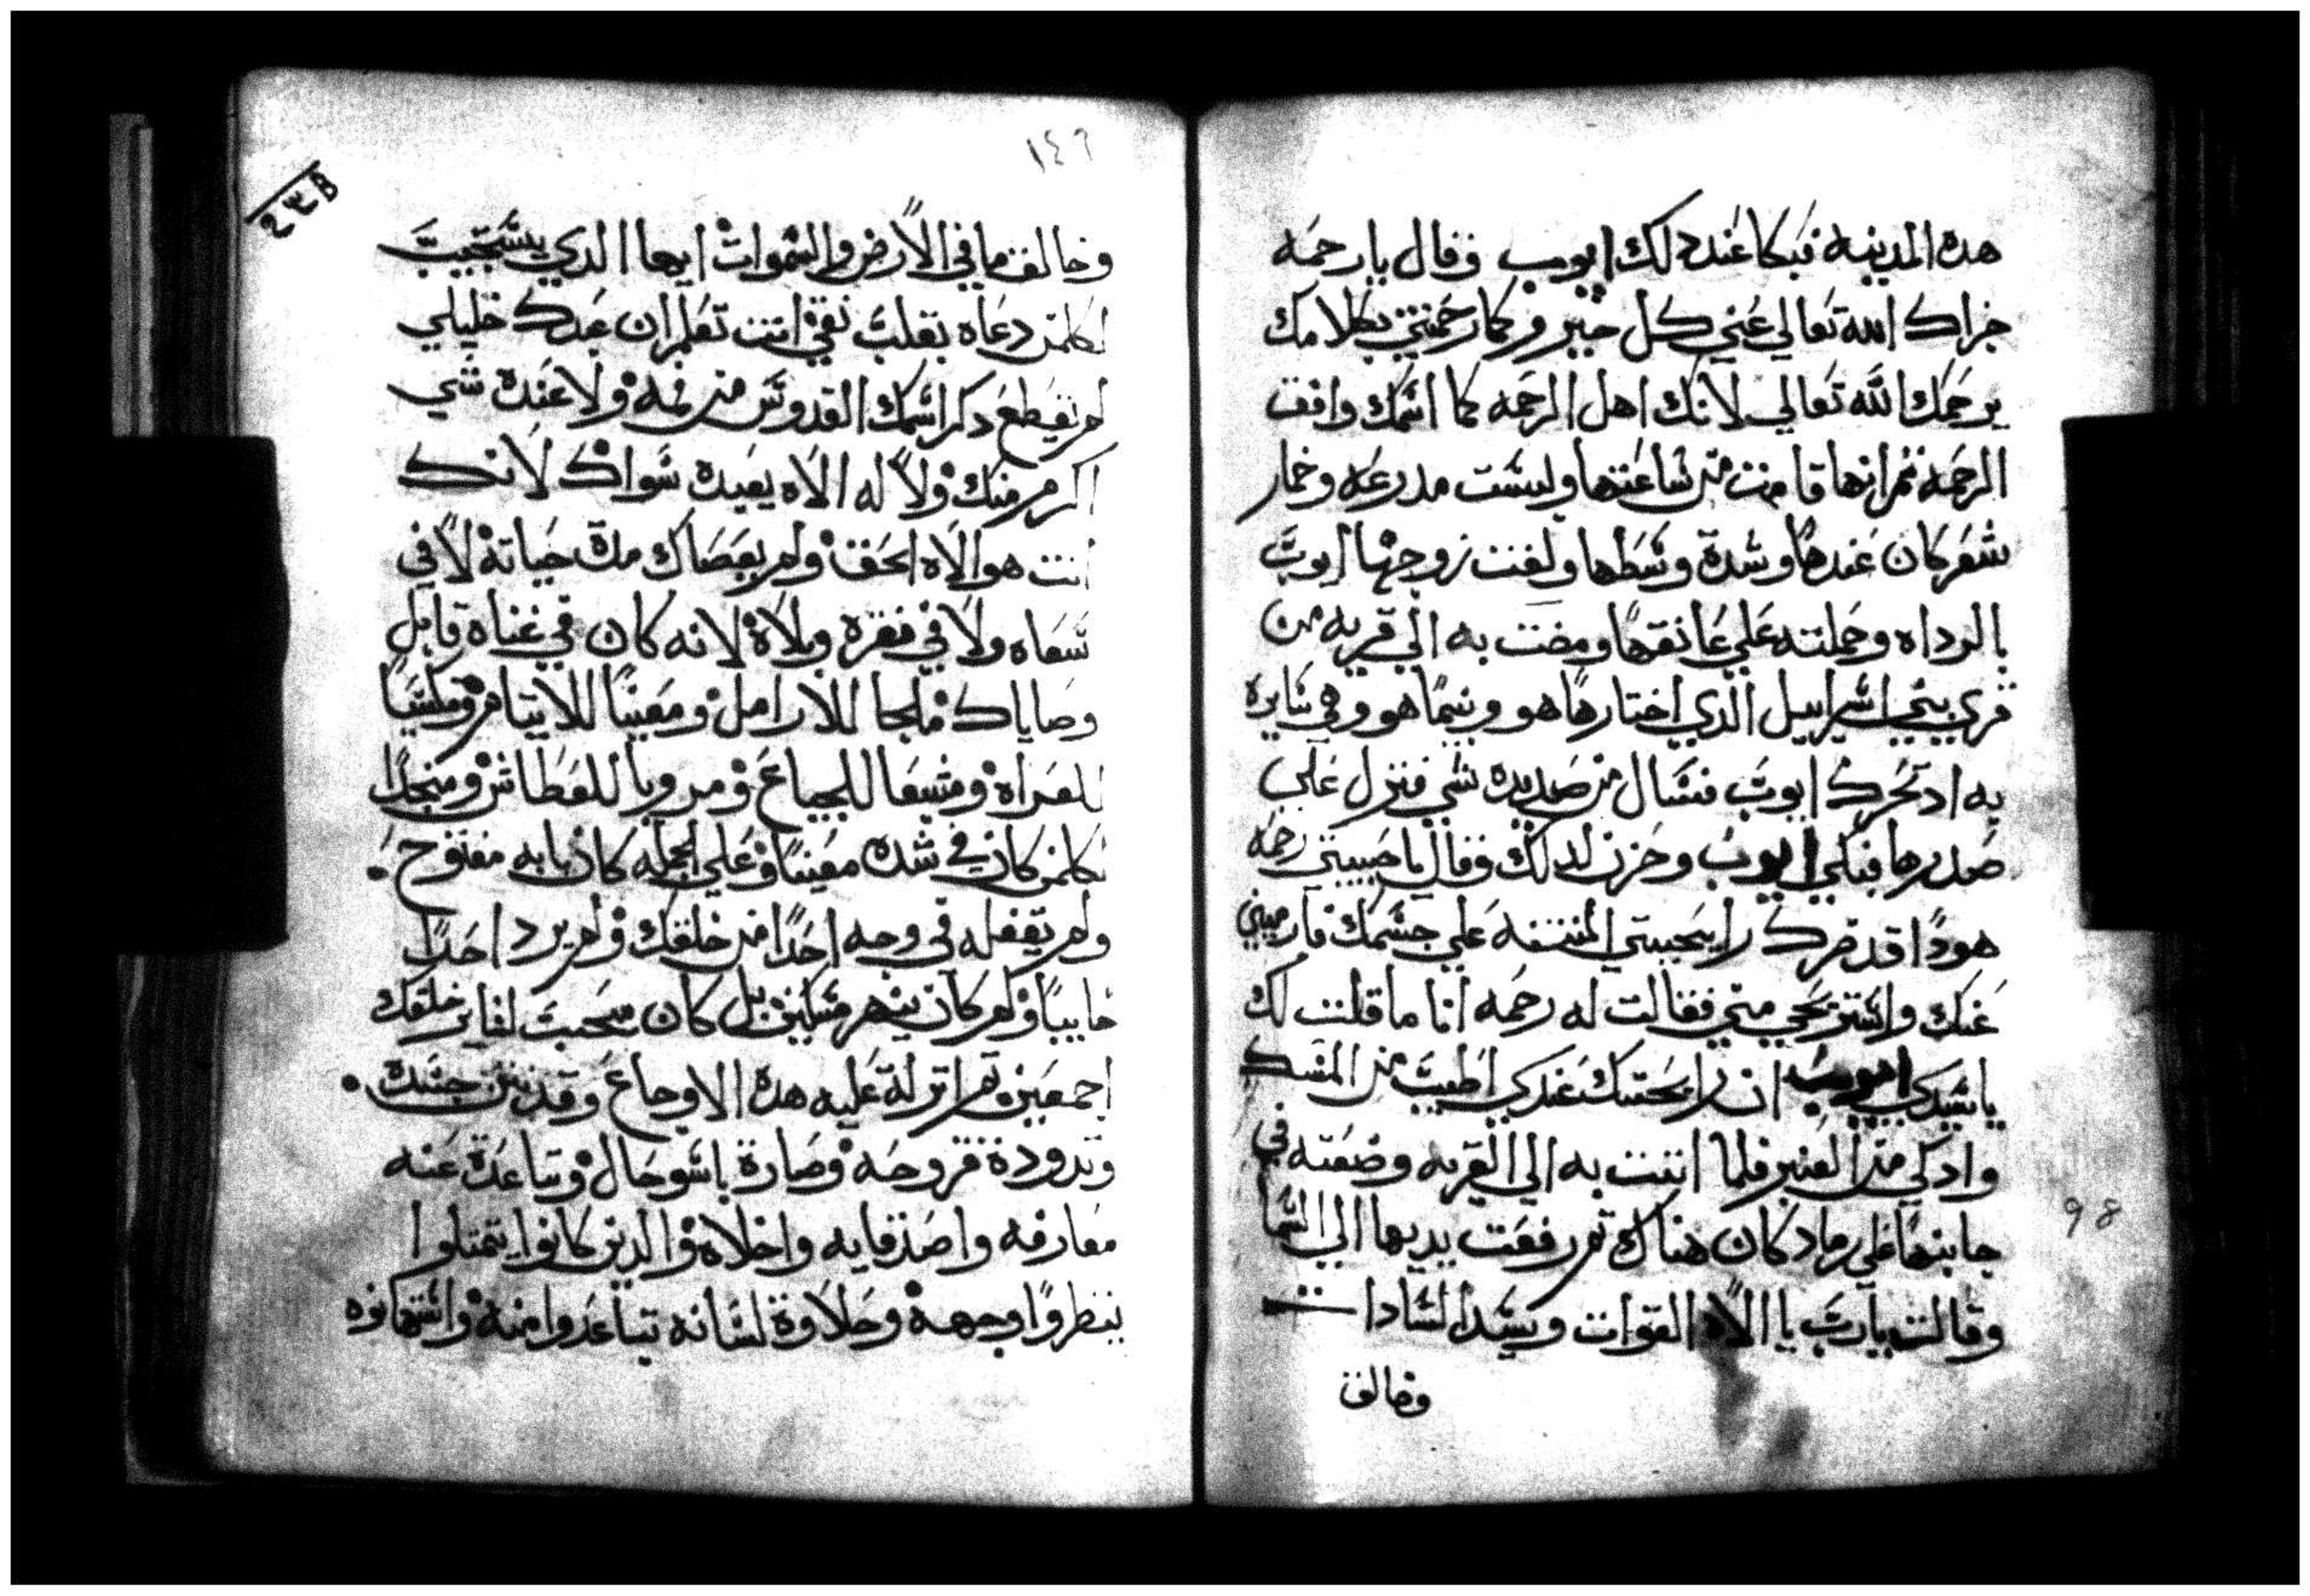 هده المدينه فبكا عند دلك ايوب وقال يا رحمه
جزاك الله تعالي عني كل خير وكما رحمتني بكلامك
يرحمك الله تعالي لانك اهل الرحمه كما اسمك وافق
الرحمه ثم انها قامت من ساعتها ولبست مدرعه وخمار
شعر كان عندها وشدة وسطها ولفت زوجها ايوب
بالرداه وحملته علي عاتقها ومضت به الي قريه من
قري بني اسراييل الدي اختارها هو وبينما هو وهي سايره
به اد تحرك ايوب فسال من صديده شي فنزل علي
صدرها فبكي ايوب وحزن لدلك وقال يا حبيبتي رحمه
هودا قد ضرك رايحتي المنتنه علي جسمك فارميني
عنك واستريحي مني فقالت له رحمه انا ما قلت لك
يا سيدي ايوب ان رايحتك عندي اطيب من المسك
وادكي من العنبر فلما اتت به الي القريه وضعته في
جانبها علي رماد كان هناك ثم رفعت يديها الي السما
وقالت يارب يا الاه القوات وسيد السادات
وخالق
١٤٦
وخالق ما في الارض والسموات ايها الدي يستجيب
لكلمن دعاه بقلب نقي انت تعلم ان عبدك خليلي
لم يقطع دكر اسمك القدوس من فمه ولا عنده شي
اكرم منك ولا له الاه يعبده سواك لانك
انت هو الالاه الحق ولم يعصاك مدة حياته لا في
سعاه ولا في فقره وبلاه لانه كان في غناه قابل
وصاياك ملجا للارامل ومعينا للايتام وملبسا
للعراه ومشبعا للجياع ومرويا للعطاش ومنجدا
لكلمن كان في شده معينا وعلي الجمله كان بابه مفتوح
ولم يقفله في وجه احدا من خلقك ولم يرد احدا
خايبا ولم كان ينهر مسكين بل كان محب لساير خلقك
اجمعين ثم انزلة عليه هده الاوجاع وقد نتن جسده
وتدودة قروحه وصارة باسو حال وتباعدة عنه
معارفه واصدقايه واخلاه والدين كانوا يتمنوا
ينظروا وجهه وحلاوة لسانه تباعدوا منه واستهانوه
98